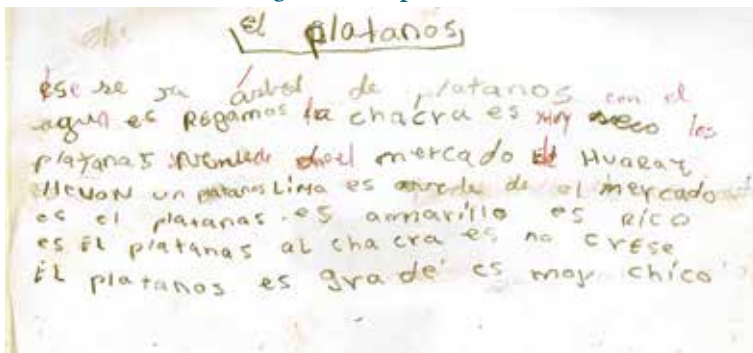 el platanos
ese se sa árbol de platanos con el
agua es Regamos la chacra es muy seco los
platanas el mercado HUARAZ
LLEVAN un LIMA es de el mercado
es el platanas es amarillo es RICO
es EL platanas al chacra es no CRESE
EL platanos es grade es moy chico